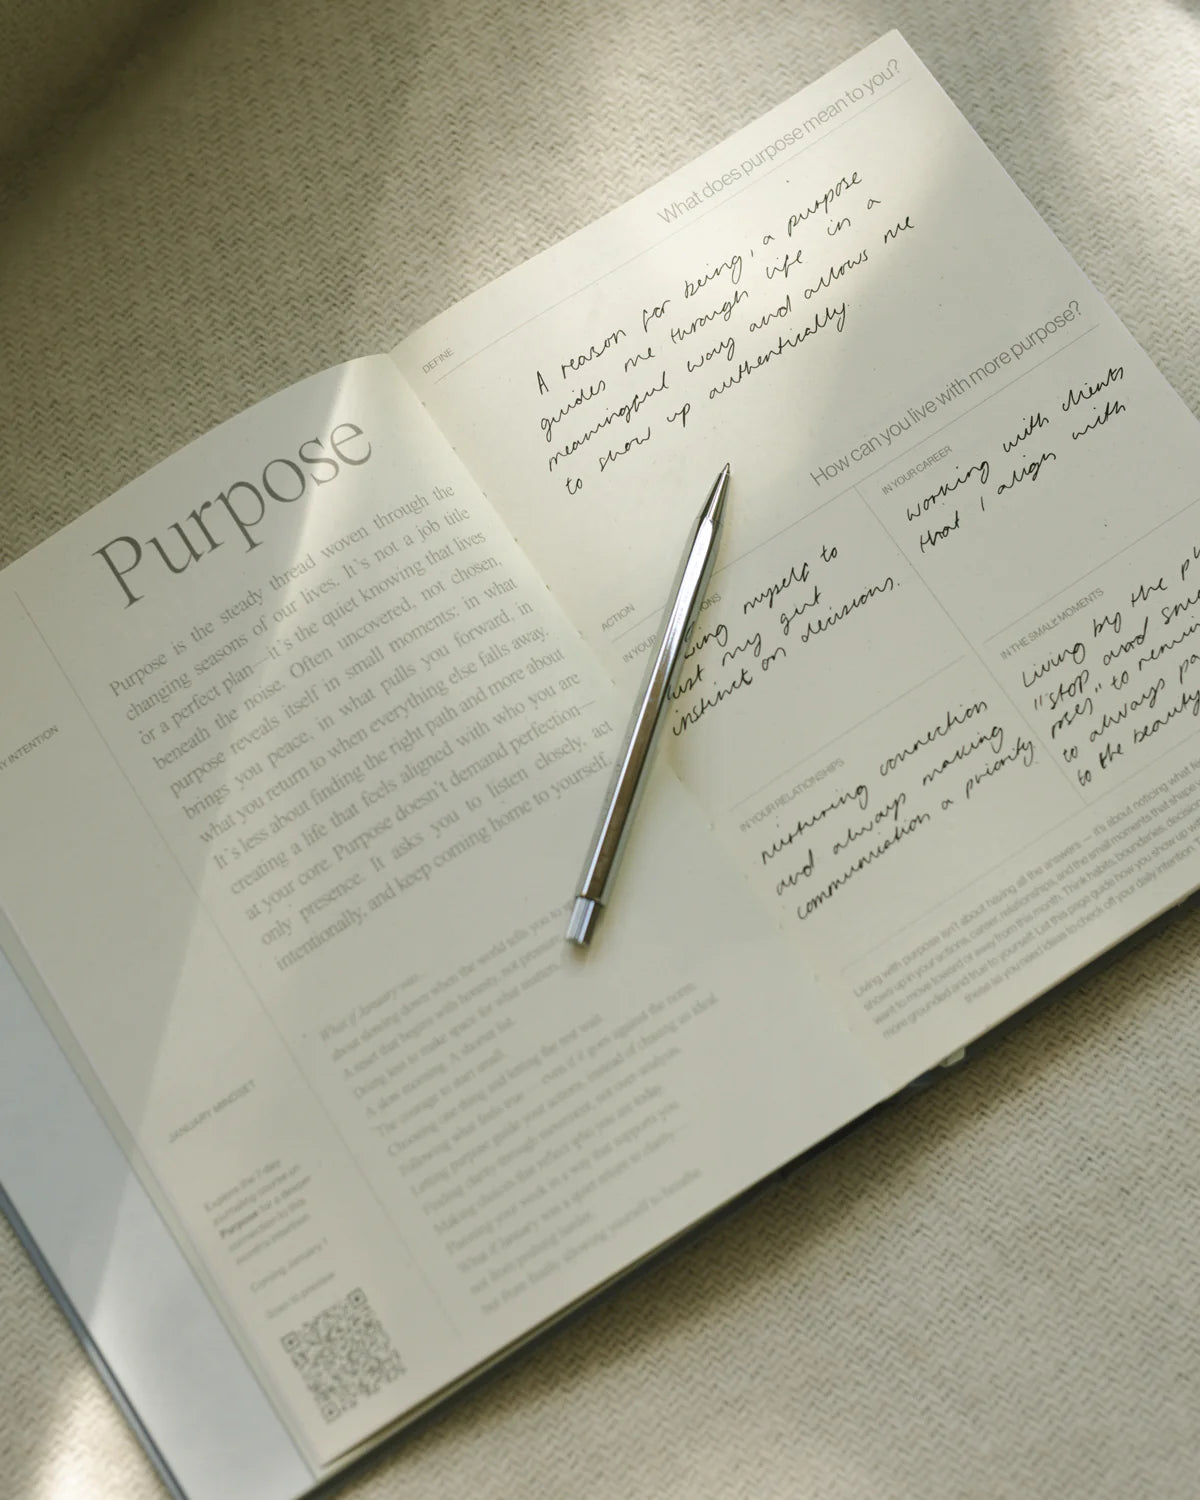 Purpose
Purpose is the steady thread woven through the
changing seasons of our lives. It's not a job title
or a perfect plan—it's the quiet knowing that lives
beneath the noise. Often uncovered, not chosen,
purpose reveals itself in small moments: in what
brings you peace, in what pulls you forward, in
what you return to when everything else falls away.
It's less about finding the right path and more about
creating a life that feels aligned with who you are
at your core. Purpose doesn't demand perfection—
only presence. It asks you to listen closely, act
intentionally, and keep coming home to yourself.
INTENTION
What if January was...
about slowing down when the world tells you to
A road that begins with honesty, not pressure
Doing less to make space for what matters
A slow morning. A shorter list.
The courage to start small.
Choosing one thing and letting the rest wait
Following what feels true — even if it goes against the norm
Letting purpose guide your actions instead of chasing an ideal
Finding clarity through movement, not over analysis
Making choices that reflect who you are today
Planning your work in a way that supports you
What if January was a quiet return to clarity
not from pushing harder,
but from finally allowing yourself to breathe
JANUARY MINDSET
Explore the 7 day
journaling course on
Purpose for a deeper
connection to this
months intention
Coming January 1
Scan to preview
DEFINE
What does purpose mean to you?
A reason for being, a purpose
guides me through life in a
meaningful way and allows me
to show up authentically.
ACTION
How can you live with more purpose?
IN YOUR
myself to
my gut
instinct on decisions.
IN YOUR CAREER
working with clients
that I align with
IN YOUR RELATIONSHIPS
nurturing connection
and always making
communication a priority
IN THE SMALL MOMENTS
Living by the
"stop and
roses" to
to always
to the beauty
Living with purpose isn't about having all the answers — it's about noticing what
shows up in your actions, career, relationships, and the small moments that
want to move toward or away from this month. Think habits, boundaries,
more grounded and true to yourself. Let this page guide how you show up
these as you need ideas to check off your daily intention